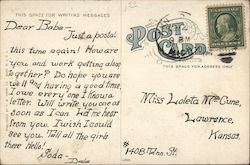 THIS SPACE FOR WRITING MESSAGES
POST CARD
THIS SPACE FOR ADDRESS ONLY
Dear Babe -
Just a postal
this time again! How are
you and work getting along
together? Do hope you are
well and having a good time.
Love every one I know a
letter. Will write you one as
soon as I can. Let me hear
from you. I wish I could
see you. Tell all the girls
there "Hello."
Miss Loleta Mc Cune,
Lawrence,
Kansas.
#1408 Tenn. St.